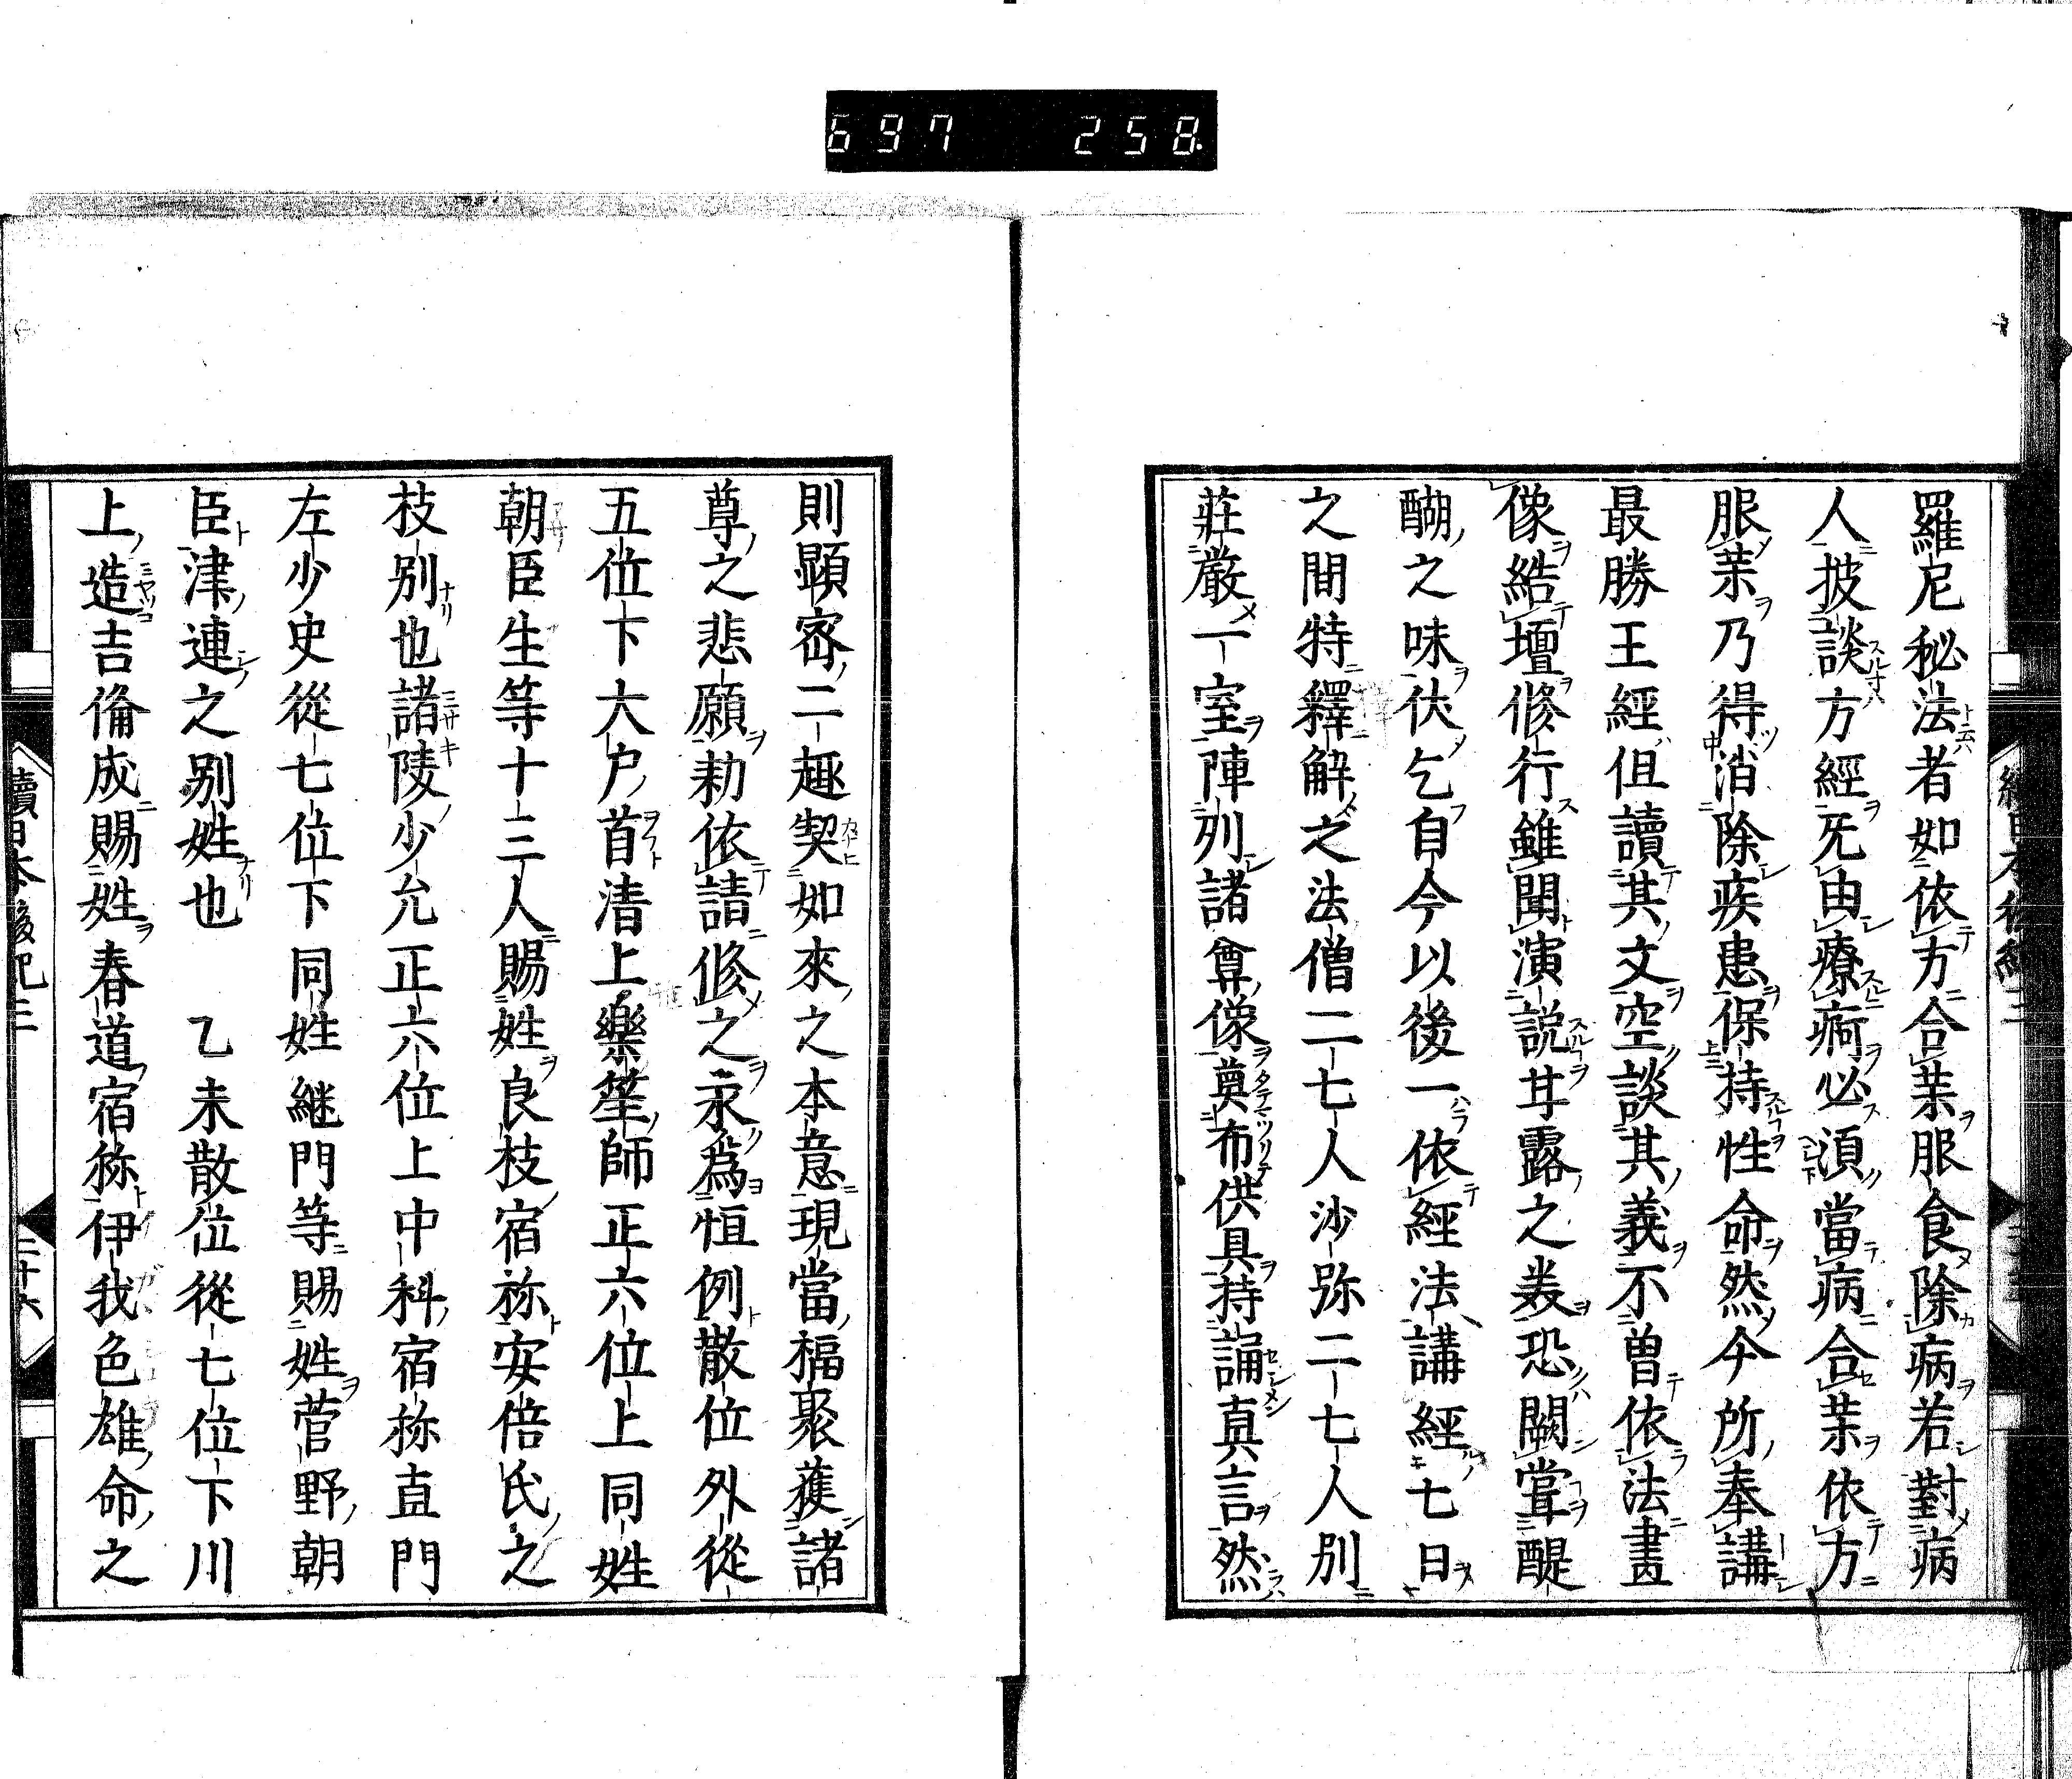 697 258
羅尼秘法者如依方合藥服食除病若對病
人披談方經旡由療痾必湏當病合藥依方
服藥乃得消除疾患保持性命然今所奉講
最勝王經但讀其文空談其義不曽依法畫
像結壇修行雖聞演說甘露之美恐闕甞醍
醐之味伏乞自今以後一依經法講經七日
之間特擇解之法僧二七人沙弥二七人別
莊嚴一室陣列諸尊像奠布供具持誦真言然
則顕宻二趣契如來之本意現當福聚蓰諸
尊之悲願勅依請修之永為恒例散位外從
五位下大戸首清上樂笙師正六位上同姓
朝臣生等十三人賜姓良枝宿祢安倍氏之
枝别也諸陵少允正六位上中科宿祢直門
左少史從七位下同姓継門等賜姓菅野朝
臣津連之别姓也　乙未散位從七位下川
上造吉備成賜姓春道宿祢伊我色雄命之
續日本後紀三
二十六